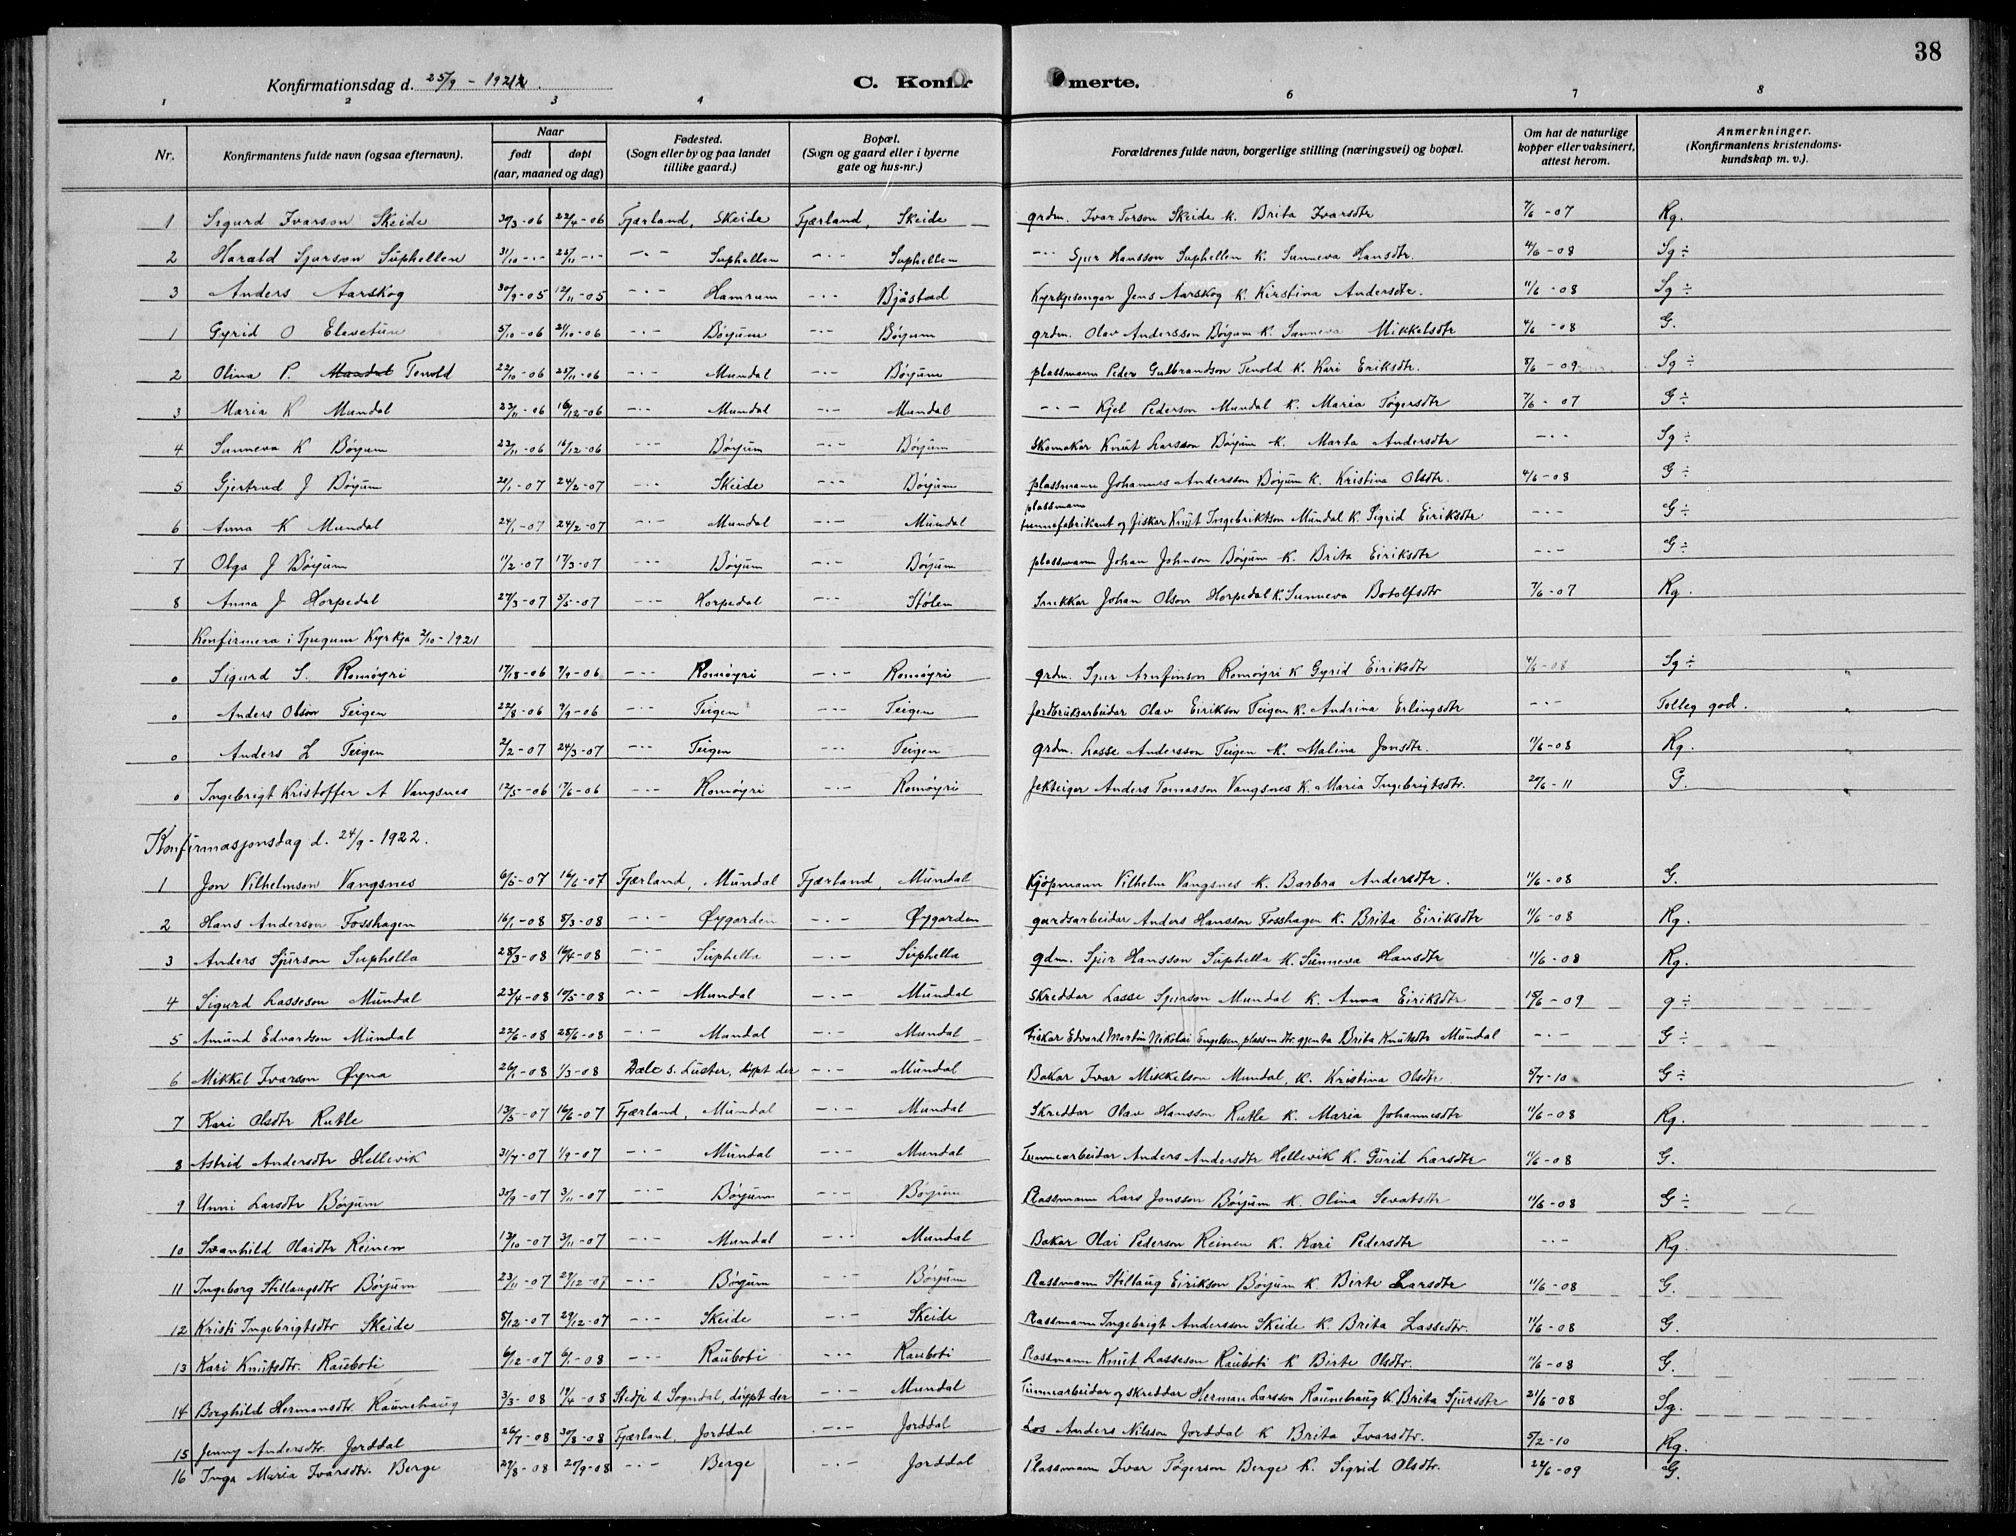 38
Konfirmationsdag d. 25/9 - 1921. C. Konfirmerte.
1 2 3 4 6 7 8
Nr. Konfirmantens fulde navn (ogsaa efternavn). Naar født døpt (aar, maaned og dag) Fødested. (Sogn eller by og paa landet tillike gaard.) Bopæl. (Sogn og gaard eller i byerne gate og hus-nr.) Forældrenes fulde navn, borgerlige stilling (næringsvei) og bopæl. Om hat de naturlige kopper eller vaksinert, attest herom. Anmerkninger. (Konfirmantens kristendoms-kundskap m. v.).
1 Sigurd Ivarson Skeide 30/3-06 22/4-06 Fjærland, Skeide Fjærland, Skeide grdm. Ivar Torson Skeide k. Brita Ivarsdtr 7/6-07 Rg.
2 Harald Sjurson Suphellen 31/10-·- 25/11-·- -·- Suphellen -·- Suphellen -·- Sjur Hansson Suphellen k. Sunneva Hansdtr. 4/6-08 Sg ÷
3 Anders Aarskog 30/9-05 12/11-05 -·- Hamrum -·- Bjåstad Kyrkjesongar Jens Aarskog k. Kirstina Andersdtr. 11/6-08 Sg ÷
1 Gyrid O Elvetun 5/10-06 21/10-06 -·- Bøyum -·- Bøyum grdm. Olav Andersson Bøyum k. Sunneva Mikkelsdtr 4/6-08 G.
2 Olina P. Mundal Tenold 22/10-06 25/11-06 -·- Mundal -·- Bøyum plassmann Peder Gulbrandson Tenold k. Kari Eriksdtr. 8/6-09 Sg ÷
3 Maria K Mundal 23/11-06 16/12-06 -·- Mundal -·- Mundal -·- Kjel Pederson Mundal k. Maria Tøgersdtr 7/6-07 G ÷
4 Sunneva K Bøyum 23/11-06 16/12-06 -·- Bøyum -·- Bøyum Skomakar Knut Larsson Bøyum k. Marta Andersdtr -·- Sg ÷
5 Gjertrud J Bøyum 21/1-07 24/2-07 -·- Skeide -·- Bøyum plassmann Johannes Andersson Bøyum k. Kristina Olsdtr. 4/6-08 G ÷
6 Anna K Mundal 24/1-07 24/2-07 -·- Mundal -·- Mundal plassmann tunnefabrikant og fiskar Knut Ingebriktson Mundal k. Sigrid Eiriksdtr -·- G ÷
7 Olga J Bøyum 11/2-07 17/3-07 -·- Bøyum -·- Bøyum plassmann Johan Johnson Bøyum k. Brita Eiriksdtr -·- G ÷
8 Anna J Horpedal 27/3-07 5/5-07 -·- Horpedal -·- Stølen Snikkar Johan Olson Horpedal k. Sunneva Botolfsdtr 7/6-07 Rg.
Konfirmera i Tjugum Kyrkja 2/10-1921
0 Sigurd S. Romøyri 17/8-06 9/9-06 -·- Romøyri -·- Romøyri grdm. Sjur Arnfinson Romøyri k Gyrid Eiriksdtr 4/6-08 Sg ÷
0 Anders Olson Teigen 22/8-06 9/9-06 -·- Teigen -·- Teigen Jordbruksarbeidar Olav Eirikson Teigen k. Andrina Erlingsdtr -·- Tolleg god.
0 Anders L Teigen 2/2-07 24/3-07 -·- Teigen -·- Teigen grdm. Lasse Andersson Teigen k. Malina Jonsdtr. 11/6-08 Rg.
0 Ingebrigt Kristoffer A Vangsnes 12/5-06 17/6-06 -·- Romøyri -·- Romøyri Jekteigar Anders Tomasson Vangsnes k. Maria Ingebrigtsdtr. 20/6-11 G.
Konfirmasjonsdag d. 24/9-1922.
1 Jon Vilhelmson Vangsnes 6/5-07 16/6-07 Fjærland, Mundal Fjærland, Mundal Kjøpmann Vilhelm Vangsnes k. Barbra Andersdtr. 11/6-08 G.
2 Hans Anderson Fosshagen 16/1-08 8/3-08 -·- Øygarden -·- Øygarden gardsarbeidar Anders Hansson Fosshagen k. Brita Eiriksdtr 11/6-08 Rg.
3 Anders Sjurson Suphella 28/3-08 16/4-08 -·- Suphella -·- Suphella gdm. Sjur Hansson Suphella k. Sunneva Hansdtr 11/6-08 Rg.
4 Sigurd Lasseson Mundal 23/4-08 10/5-08 -·- Mundal -·- Mundal Skreddar Lasse Sjurson Mundal k. Anna Eiriksdtr 15/6-09 g ÷
5 Amund Edvardson Mundal 22/6-08 28/6-08 -·- Mundal -·- Mundal Fiskar Edvard Martin Nikolai Engelsen, plassmdtr. gjenta Brita Knutsdtr Mundal -·- G ÷
6 Mikkel Ivarson Øyna 26/1-08 1/3-08 Dale s. Luster, døypt der -·- Mundal Bakar Ivar Mikkelson Mundal, k. Kristina Olsdtr 5/7-10 G ÷
7 Kari Olsdtr Rutle 13/5-07 16/6-07 Fjærland, Mundal -·- Mundal Skreddar Olav Hansson Rutle k. Maria Johannesdtr 11/6-08 Rg.
8 Astrid Andersdtr Hellevik 31/7-07 1/9-07 -·- Mundal -·- Mundal Tunnearbeidar Anders Andersdtr Hellevik k. Gurid Larsdtr 11/6-08 G.
9 Unni Larsdtr Bøyum 30/9-07 3/11-07 -·- Bøyum -·- Bøyum Plassmann Lars Jonsson Bøyum k. Olina Sevatsdtr 11/6-08 G ÷
10 Svanhild Olaidtr Reinen 13/10-07 3/11-07 -·- Mundal -·- Mundal Bakar Olai Pederson Reinen k. Kari Pedersdtr -·- Rg.
11 Ingeborg Stillaugsdtr Bøyum 23/11-07 29/12-07 -·- Bøyum -·- Bøyum Plassmann Stillaug Eirikson Bøyum k. Birte Larsdtr 11/6-08 G.
12 Kristi Ingebrigtsdtr Skeide 8/12-07 29/12-07 -·- Skeide -·- Skeide Plassmann Ingebrigt Andersson Skeide k. Brita Lassedtr. 11/6-08 G.
13 Kari Knutsdtr. Rauboti 6/12-07 6/1-08 -·- Rauboti -·- Rauboti Plassmann Knut Lasseson Rauboti k Birte Olsdtr. 11/6-08 G.
14 Borghild Hermansdtr. Raunehaug 3/3-08 19/4-08 Stedje s. Sogndal, døypt der -·- Mundal Tunnearbeidar og skreddar Herman Larsson Raunehaug k. Brita Sjursdtr 21/6-08 Sg.
15 Jenny Andersdtr. Jorddal 26/7-08 30/8-08 Fjærland, Jorddal -·- Jorddal Los Anders Nilsson Jorddal k Brita Ivarsdtr. 5/2-10 Rg.
16 Inga Maria Ivarsdtr. Berge 29/8-08 20/9-08 -·- Berge -·- Jorddal Plassmann Ivar Tøgerson Berge k. Sigrid Olsdtr. 24/6-09 G.